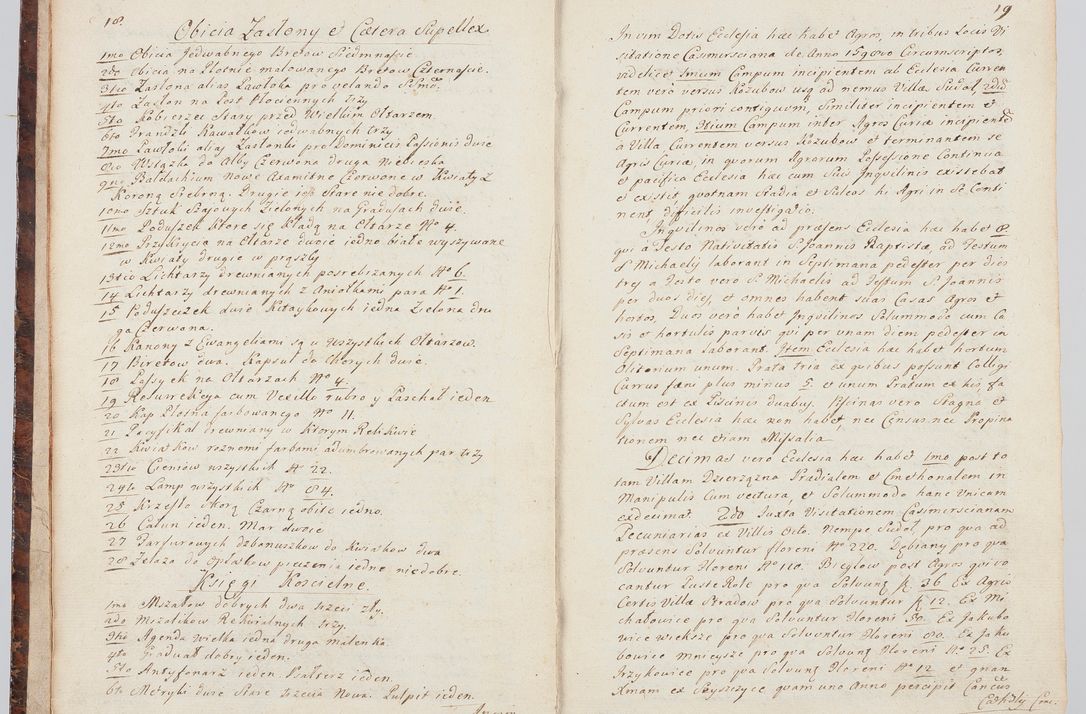 18.
Obicia Zasłony & Cætera Supellex
1mo Obicia Jedwabnego Bretow Siedmnaście.
2do Obicia na Płotnie malowanego Bretow Czternaście.
3tio Zasłona alias Zawłoka pro velando SSmo.
4to Zasłon na Post Płociennych trzy
5to Kobierzec Stary przed Wielkim Ołtarzem.
6to Frandzli Kawałkow iedwabnych trzy
7mo Pawłoki alias Zasłonki pro Dominicis Passionis dwie
8vo Wstążka do Alby Czerwona druga Niebieska
9no Baldachium Nowe Axamitne Czerwone w Kwiaty z
Koroną Srebrną. Drugie iest Stare nie dobre.
10mo Sztuk Szajowych Zielonych na Gradusach dwie.
11mo Poduszek ktore się kładą na Ołtarze No 4.
12mo Przykrycia na Ołtarze dwoie iedno białe wyszywane
w Kwiaty drugie w prążki
13tio Lichtarzy drewnianych posrebrzanych No 6.
14 Lichtarzy drewnianych z Aniołkami para No 1.
15 Poduszeczek dwie Kitaykowych iedna Zielona dru
ga Czerwona.
16 Kanony z Ewangeliami są u Wszystkich Ołtarzow.
17 Biretow dwa. Kapsuł do Chorych dwie.
18 Passyek na Ołtarzach No 4.
19 Resurrekcya cum Vexillo rubro y Paschał ieden
20 Kap Płotna farbowanego No 11.
21 Pacyfikał drewniany w ktorym Relikwie
22 Kwiatkow roznemi farbami adumbrowanych par trzy
23tio Cieniow wszystkich No 22.
24to Lamp wszystkich No 84.
25 Krzesło Skorą Czarną obite iedno.
26 Całun ieden. Mar dwoie
27 Farfurowych dzbanuszkow do Kwiatkow dwa
28 Zelaza do Opłatkow pieczenia iedne niedobre.
Księgi Koscielne.
1mo Mszałow dobrych dwa trzeci zły.
2do Mszalikow Rekwialnych trzy.
3tio Agenda wielka iedna druga malenka.
4to Graduał dobry ieden.
5to Antyfonarz ieden. Psałterz ieden.
6to Metryki dwie Stare trzecia Nowa. Pulpit ieden.

19
In vim Dotis Ecclesia hæc habet Agros, in tribus Locis Vi
sitatione Casimirsciana de Anno 1590mo Circumscriptos
videlicet Primum Campum incipientem ab Ecclesia Curren
tem vero versus Kozubow usq ad nemus Villæ Sudoł, 2dum
Campum priori contiguum, Similiter incipientem et
Currentem, 3tium Campum inter Agros Curiæ incipientē
à Villa Currentem versus Kozubow et terminantem se
Agris Curiæ, in quorum Agrorum Possessione Continua
et pacifica Ecclesia hæc cum Suis Inquilinis existebat
et existit, quotnam Stadia et Sulcos hi Agri in Se Conti
nent, difficilis investigatio.
Inquilinos vero ad præsens Ecclesia hæc habet 8.
qui à Festo Nativitatis S. Joannis Baptistæ, ad Festum
S. Michaelis laborant in Septimana pedester per dies
tres, a Festo vero S. Michaelis ad Festum S. Joannis
per duos dies, et omnes habent Suas Casas Agros et
hortos, Duos vero habet Inquilinos Solummodo cum Ca
sis et hortulis parvis qui per unam diem pedester in
Septimana laborant. Item Ecclesia hæc habet hortum
Olitorium unum. Prata tria ex quibus possunt Colligi
Currus fæni plus minus 5 et unum Pratum ex his fa
ctum est ex Piscinis duabus. Piscinas vero Stagna et
Sylvas Ecclesia hæc non habet, nec Census nec Propina
tionem nec etiam Missalia.
Decimas vero Ecclesia hæc habet 1mo post to
tam Villam Dzierzązna Prædialem et Cmethonalem in
Manipulis Cum vectura, et Solummodo hanc Unicam
exdecimat. 2do Juxta Visitationem Casimirscianam
Pecuniarias ex Villis Octo. Nempe Sudoł, pro qua ad
præsens Solvuntur floreni No 220. Dębiany pro qua
Solvuntur Floreni No 110. Bieglow post Agros qui vo
cantur Puste Role pro qua Solvunt f. 36 Ex Agris
Certis Villæ Stradow pro qua Solvuntur f. 12. Ex Mi
chałowice pro qua Solvuntur Floreni 30. Ex Jakubo
wice większe pro qua Solvuntur Floreni 80. Ex Jaku
bowice mnieysze pro qua Solvunt Floreni No 25. Ex
Krzykowice pro qua Solvunt Floreni No 12 et quan
Xmam ex Szyszczyce quam uno Anno percipit Cancus